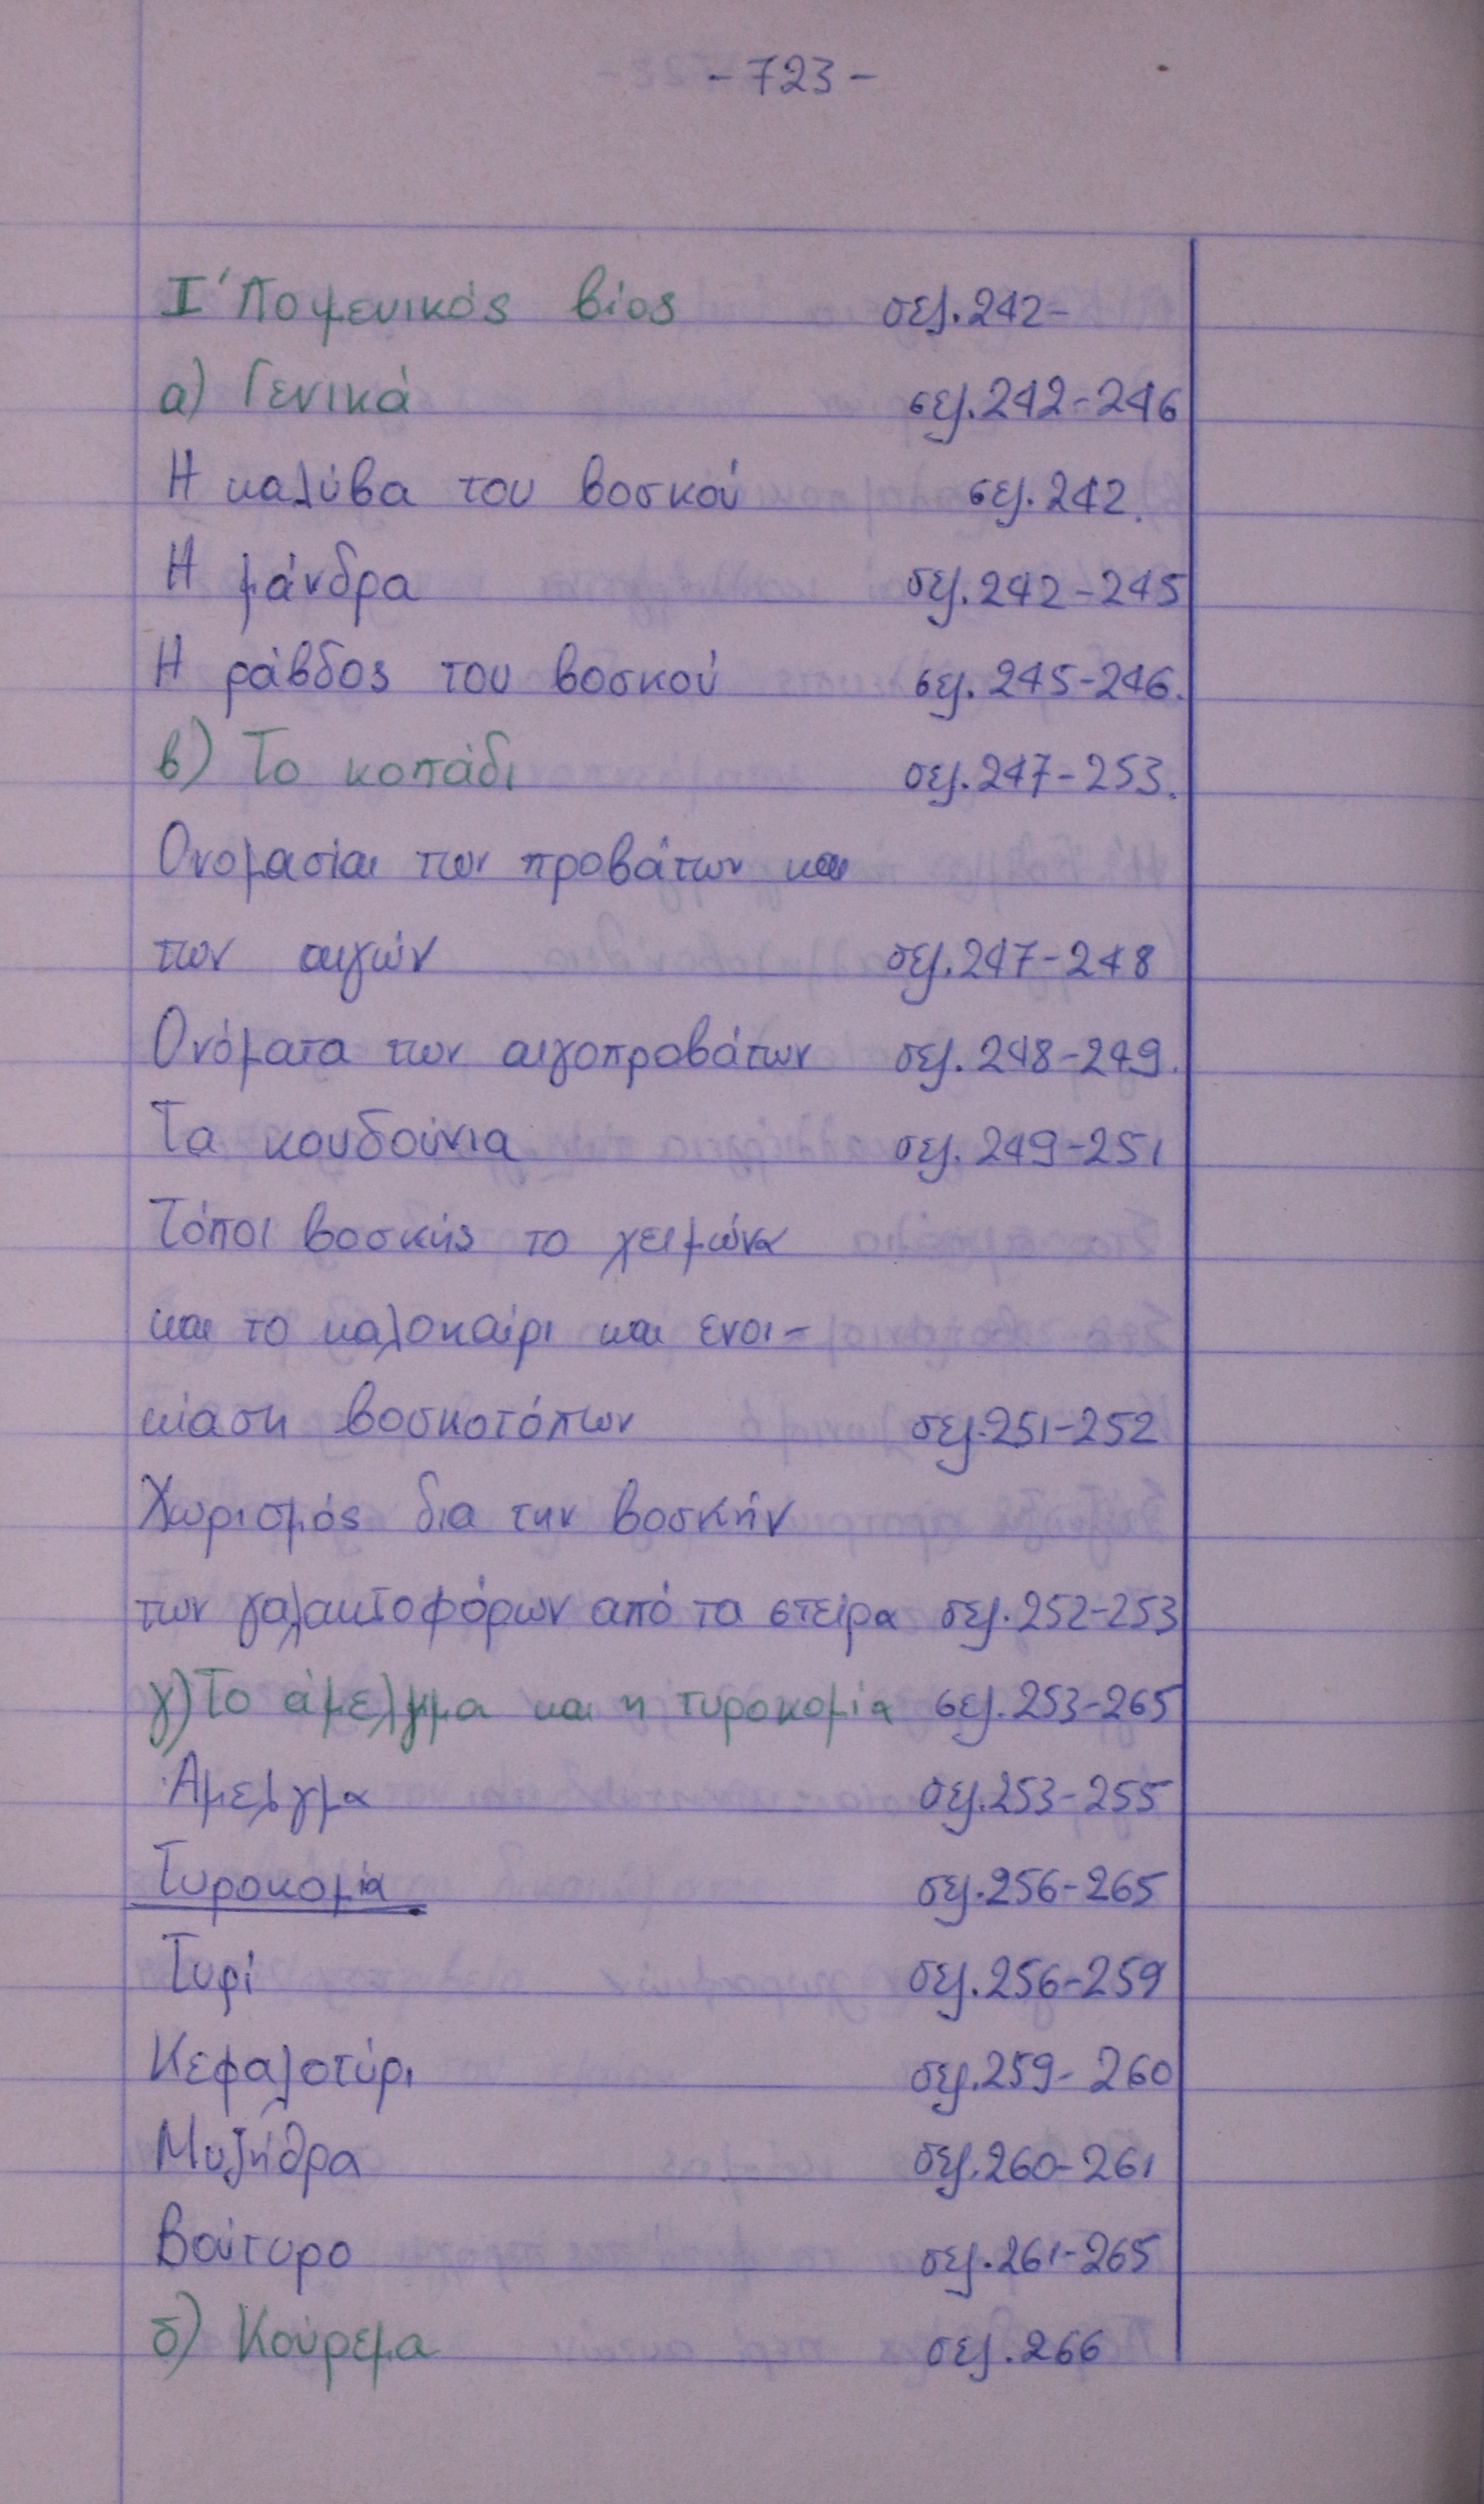 - 723 -
Ι΄ Ποιμενικός βίος σελ.242-
α) Γενικά σελ.242-246
Η καλύβα του βοσκού σελ.242.
Η μάνδρα σελ.242-245
Η ράβδος του βοσκού σελ.245-246.
β) Το κοπάδι σελ.247-253.
Ονομασίαι των προβάτων και
των αιγών σελ.247-248
Ονόματα των αιγοπροβάτων σελ.248-249.
Τα κουδούνια σελ.249-251
Τόποι βοσκής το χειμώνα
και το καλοκαίρι και ενοι-
κίαση βοσκοτόπων σελ.251-252
Χωρισμός δια την βοσκήν
των γαλακτοφόρων από τα στείρα σελ.252-253
γ) Το άμελγμα και η τυροκομία σελ.253-265
Άμελγμα σελ.253-255
Τυροκομία σελ.256-265
Τυρί σελ.256-259
Κεφαλοτύρι σελ.259-260
Μυζήθρα σελ.260-261
Βούτυρο σελ.261-265
δ) Κούρεμα σελ.266